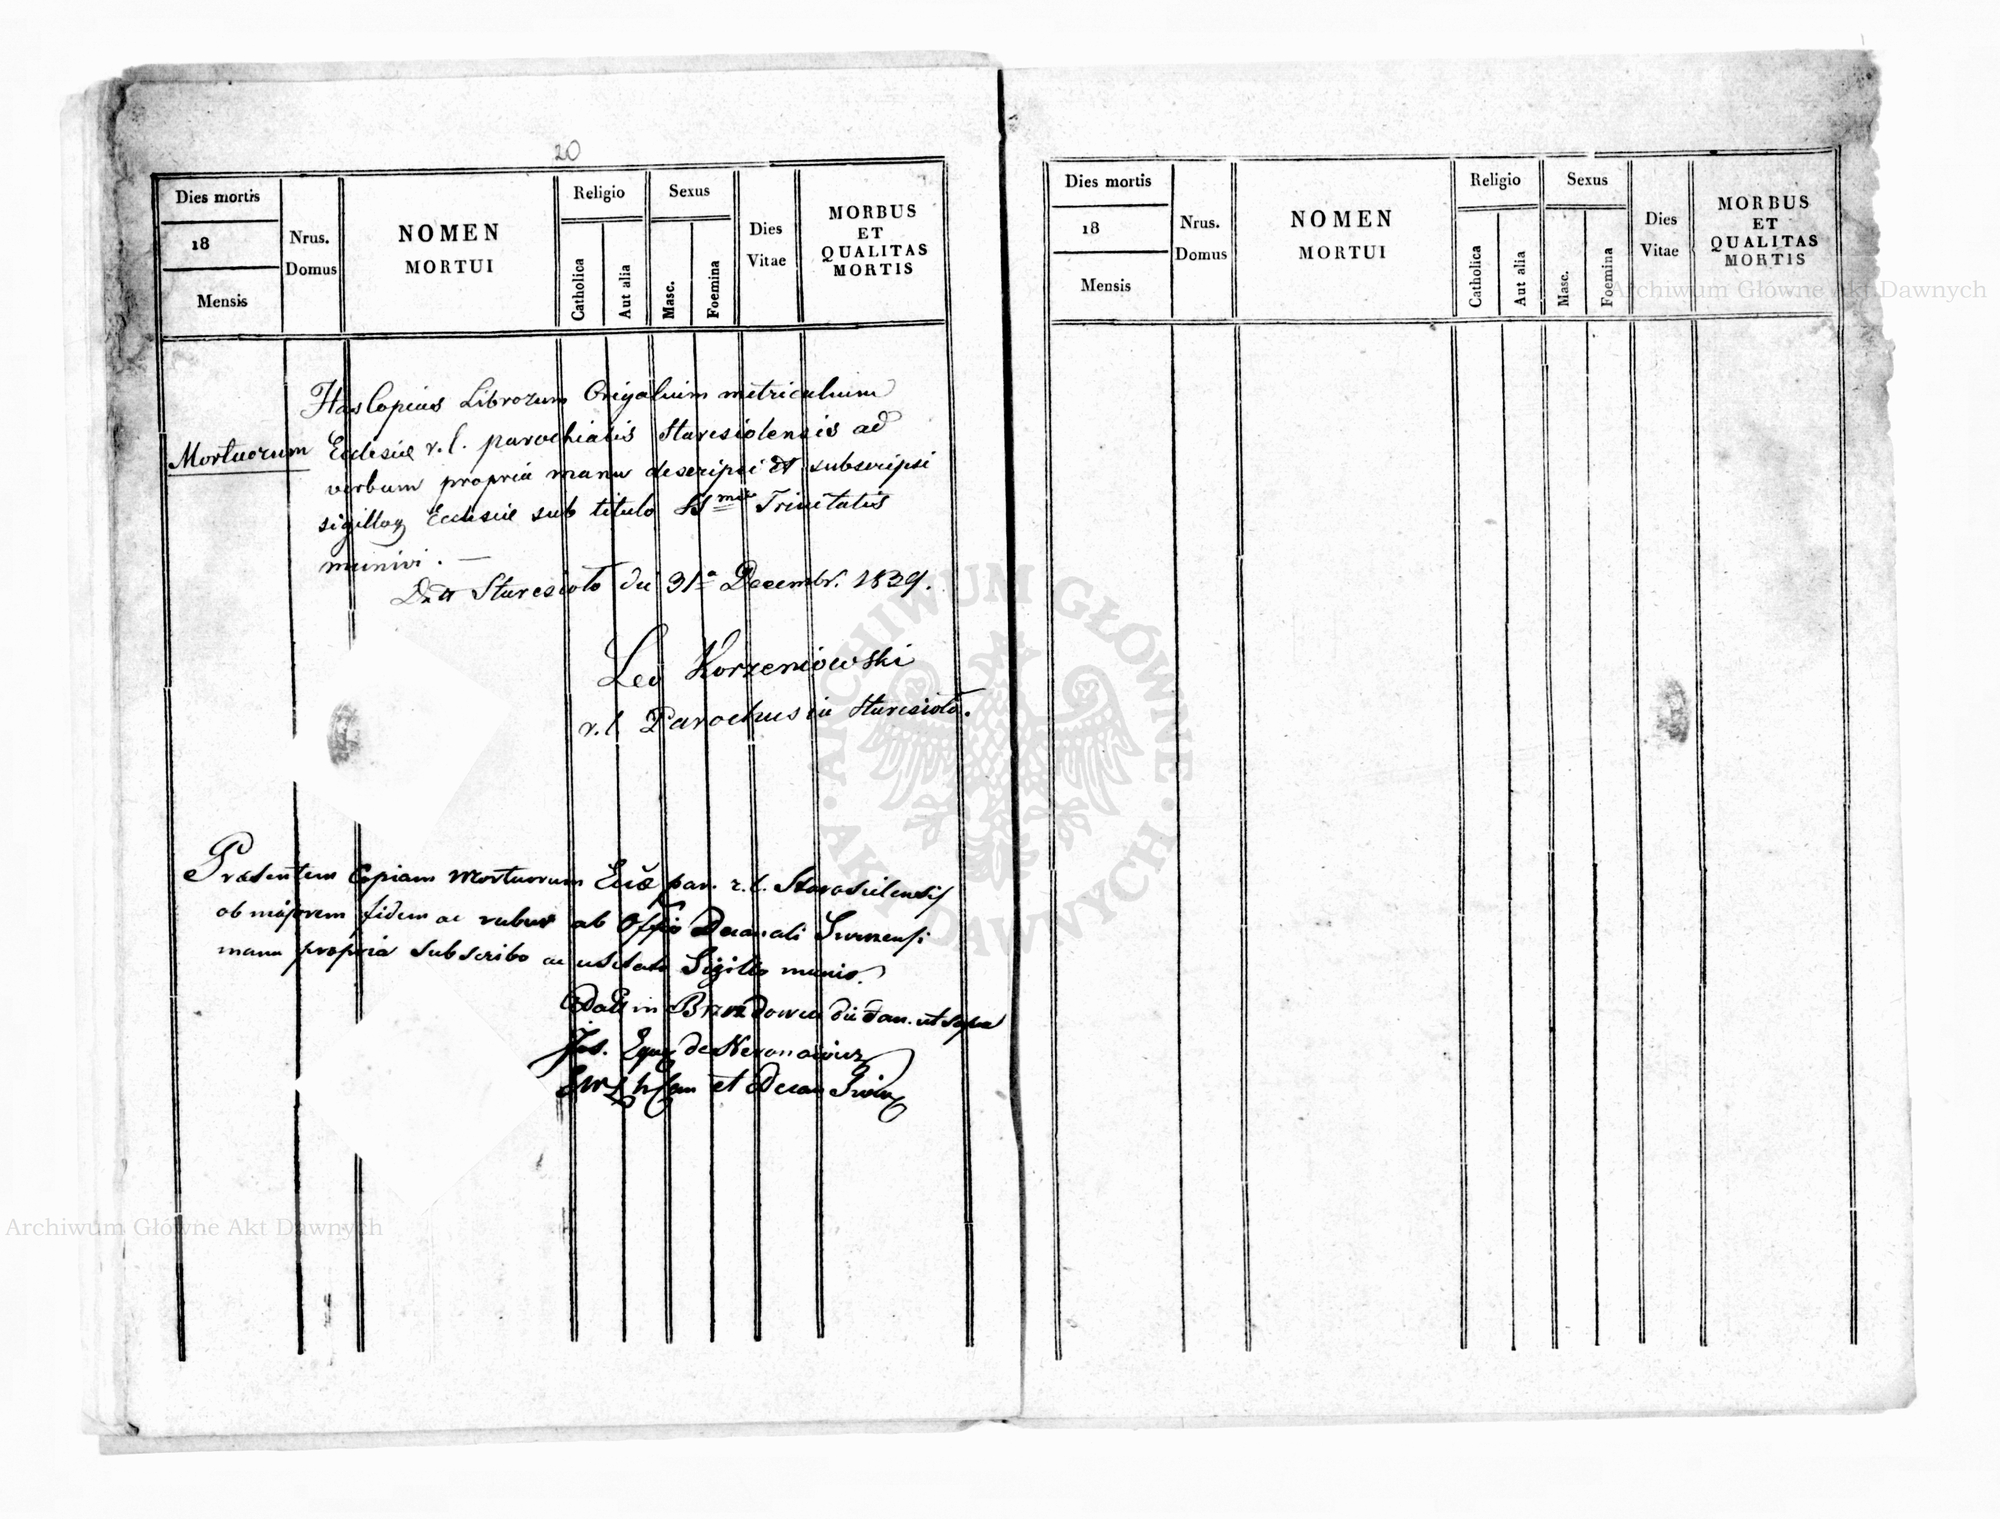 20
Dies mortis
18
Mensis
Nrus.
Domus
NOMEN
MORTUI
Religio
Catholica
Aut alia
Sexus
Masc.
Foemina
Dies
Vitae
MORBUS
ET
QUALITAS
MORTIS
Has Copias Librorum Origalium metricalium
Mortuorum Ecclesiæ r. l. parochialis Staresiolensis ad
verbum propria manu descripsi et subscripsi
sigilloq Ecclesiæ sub titulo SSmæ Trinitatis
munivi. —
Dtt Staresioło die 31a Decembr. 1839.
Leo Korzeniowski
r. l. Parochus in Staresioło.
Præsentem Copiam Mortuorum Eccæ par. r. l. Starosielensis
ob majorem fidem ac robur ab Offio Decanali
manu propria subscribo ac usitato Sigillo munio.
Datt in die ut supra
Jos. Eques de
et Decan
Dies mortis
18
Mensis
Nrus.
Domus
NOMEN
MORTUI
Religio
Catholica
Aut alia
Sexus
Masc.
Foemina
Dies
Vitae
MORBUS
ET
QUALITAS
MORTIS
Archiwum Główne Akt Dawnych
ARCHIWUM GŁÓWNE · AKT DAWNYCH ·
Archiwum Główne Akt Dawnych